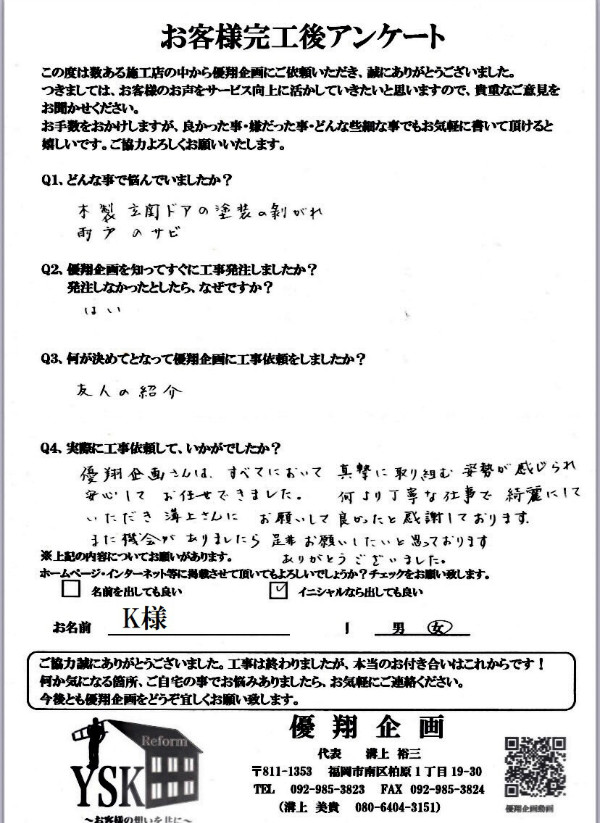 お客様完工後アンケート
この度は数ある施工店の中から優翔企画にご依頼いただき、誠にありがとうございました。
つきましては、お客様のお声をサービス向上に活かしていきたいと思いますので、貴重なご意見を
お聞かせください。
お手数をおかけしますが、良かった事・嫌だった事・どんな些細な事でもお気軽に書いて頂けると
嬉しいです。ご協力よろしくお願いいたします。
Q1、どんな事で悩んでいましたか？
木製玄関ドアの塗装の剥がれ
雨戸のサビ
Q2、優翔企画を知ってすぐに工事発注しましたか？
発注しなかったとしたら、なぜですか？
はい
Q3、何が決めてとなって優翔企画に工事依頼をしましたか？
友人の紹介
Q4、実際に工事依頼して、いかがでしたか？
優翔企画さんは、すべてにおいて 真摯に取り組む 姿勢が感じられ
安心して お任せできました。 何より丁寧な仕事で 綺麗にして
いただき 溝上さんに お願いして良かったと感謝しております。
また機会が ありましたら 是非お願いしたいと思っております
ありがとうございました。
※上記の内容についてお願いがあります。
ホームページ・インターネット等に掲載させて頂いてもよろしいでしょうか？チェックをお願い致します。
名前を出しても良い ✓ イニシャルなら出しても良い
お名前 K様 男 女
ご協力誠にありがとうございました。工事は終わりましたが、本当のお付き合いはこれからです！
何か気になる箇所、ご自宅の事でお悩みありましたら、お気軽にご連絡ください。
今後とも優翔企画をどうぞ宜しくお願い致します。
Reform
YSK
～お客様の想いを共に～
優翔企画
代表 溝上 裕三
〒811-1353 福岡市南区柏原１丁目19-30
TEL 092-985-3823 FAX 092-985-3824
（溝上 美貴 080-6404-3151）
優翔企画動画